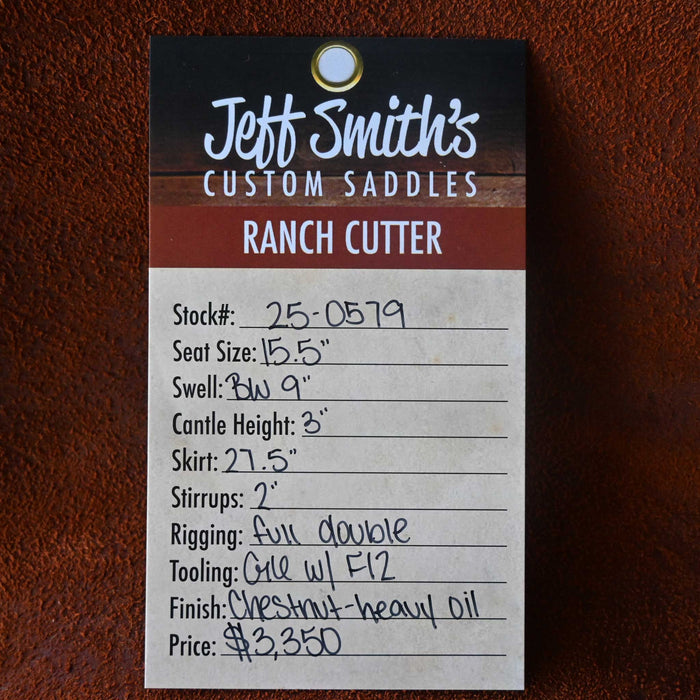 Jeff Smith's
CUSTOM SADDLES
RANCH CUTTER
Stock#: 25-0579
Seat Size: 15.5"
Swell: BW 9"
Cantle Height: 3"
Skirt: 27.5"
Stirrups: 2"
Rigging: full double
Tooling: w/ F12
Finish: Chestnut-heavy oil
Price: $3,350